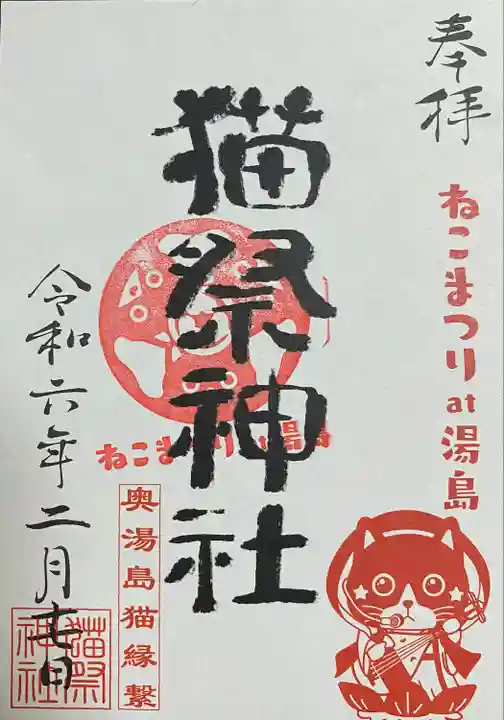 奉拝
ねこまつり at 湯島
猫祭神社
ねこまつり at 湯島
奥湯島猫縁繋
令和六年二月吉日
猫祭
神社